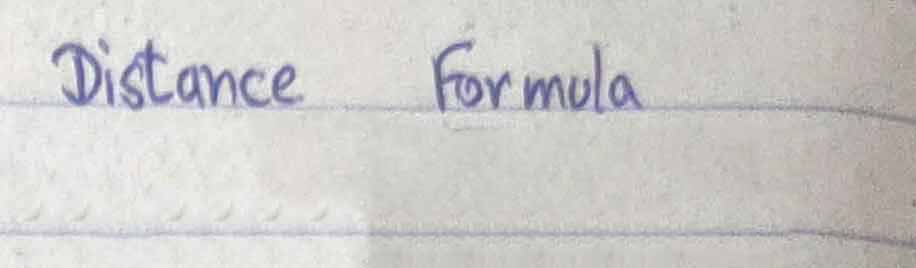 Distance Formula